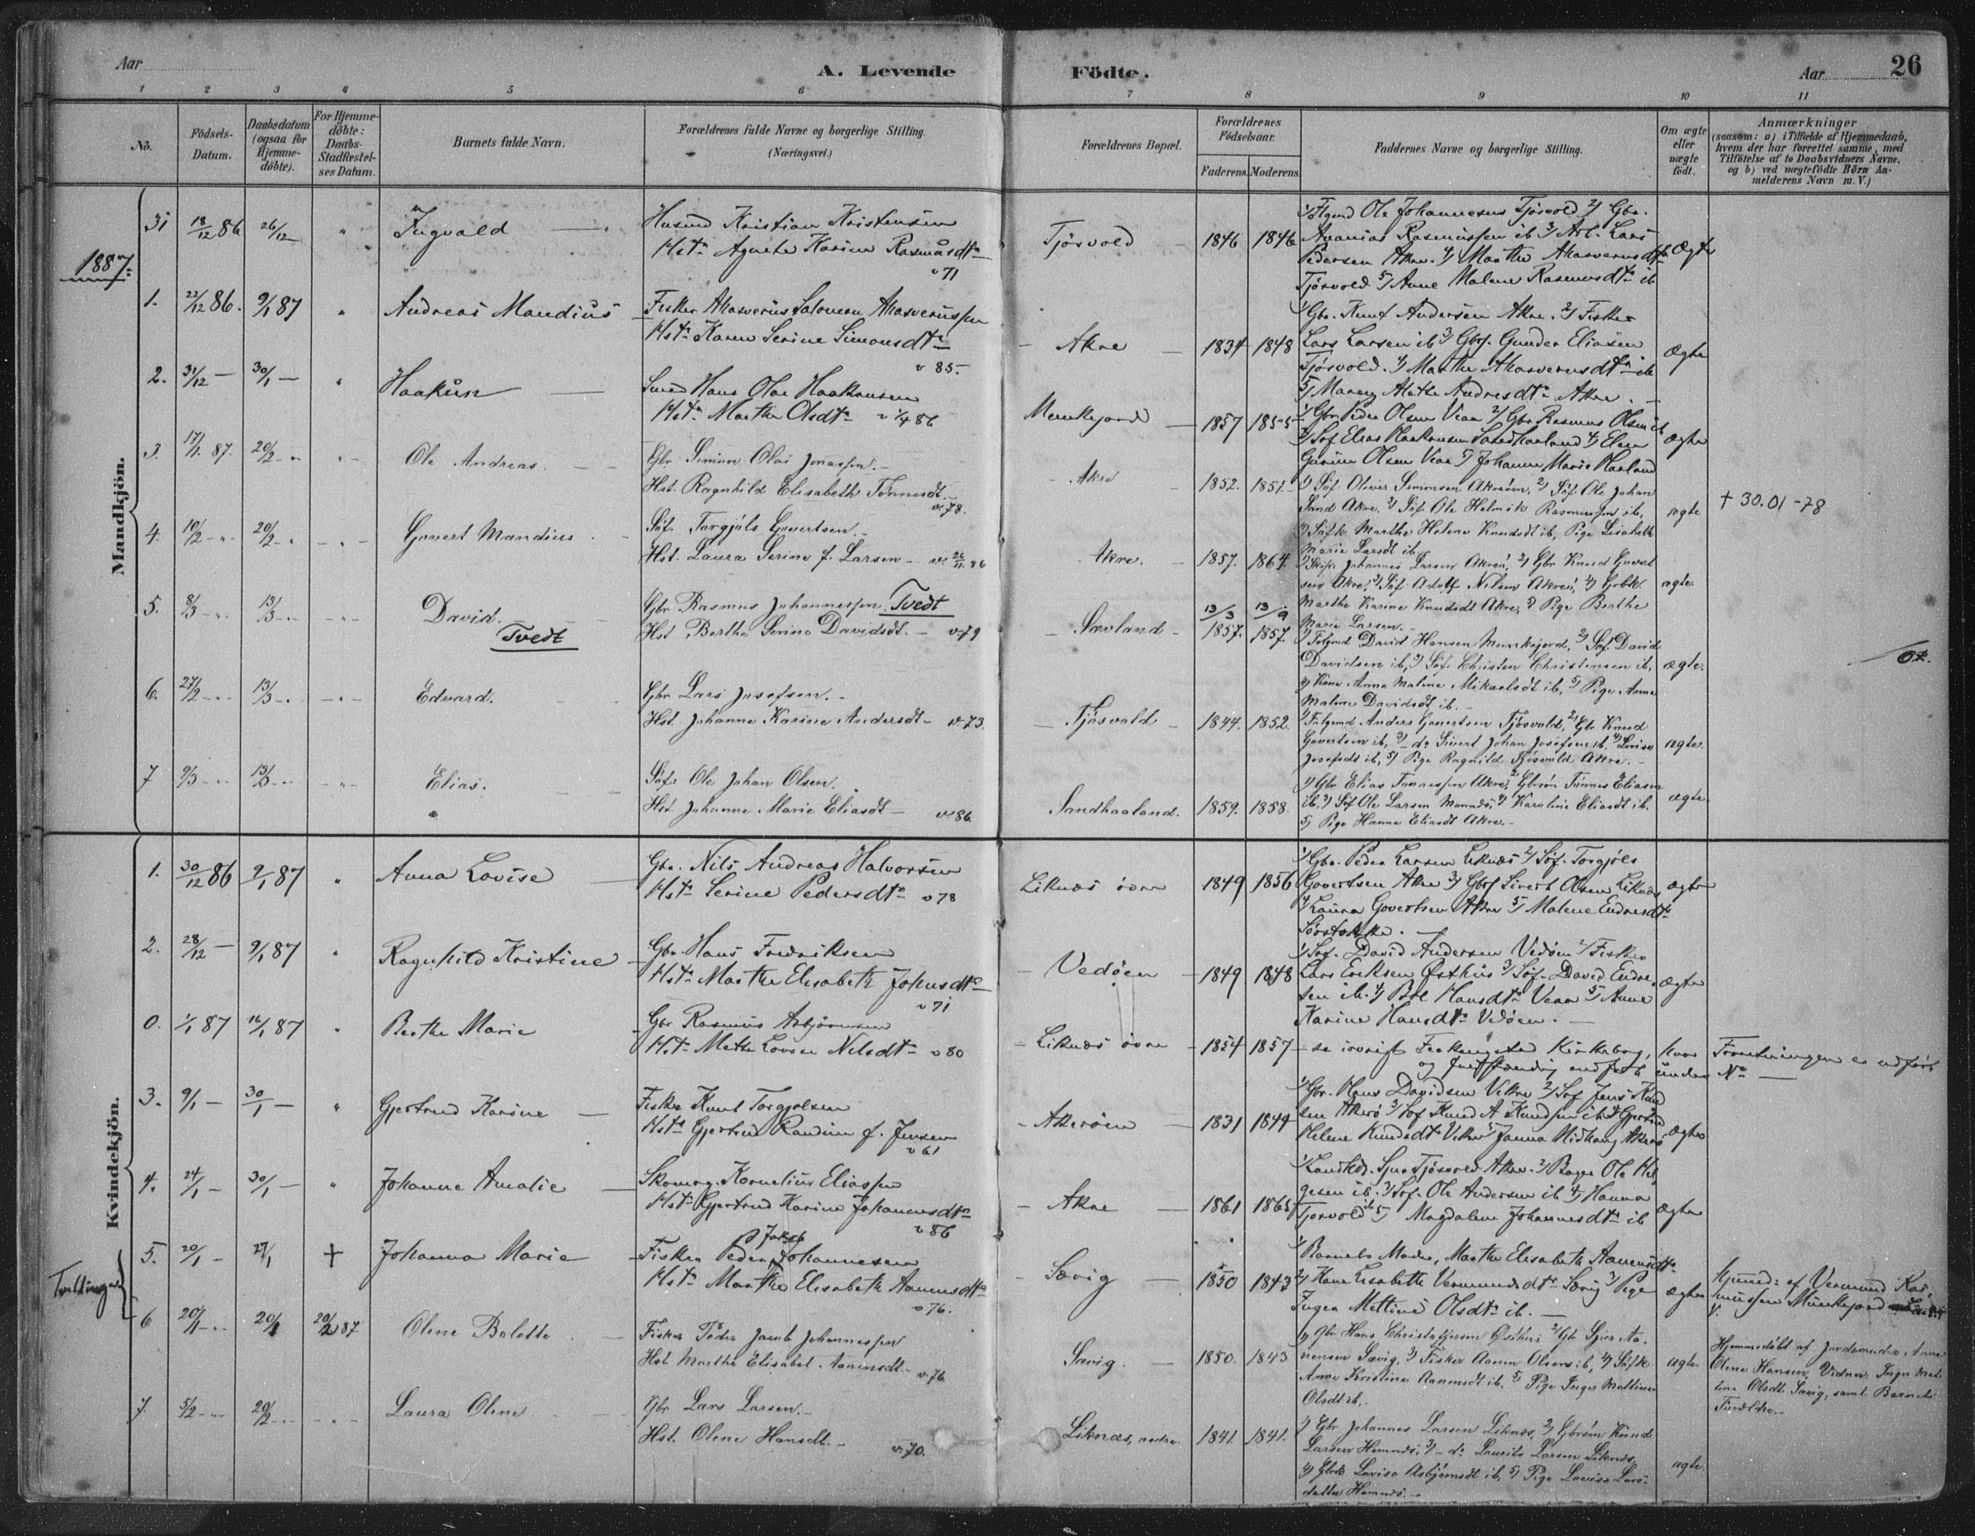 Aar
A. Levende
Födte.
Aar
26
1
2
3
4
5
6
7
8
9
10
11
No.
Födsels-
Datum.
Daabsdatum
(ogsaa for
Hjemme-
döbte).
For Hjemme-
döbte:
Daabs-
Stadfæstel-
ses Datum.
Barnets fulde Navn.
Forældrenes fulde Navne og borgerlige Stilling.
(Næringsvei.)
Forældrenes Bopæl.
Forældrenes
Födselsaar.
Faderens.
Moderens.
Faddernes Navne og borgerlige Stilling.
Om ægte
eller
uægte
födt.
Anmærkninger
(saasom: a) i Tilfælde af Hjemmedaab,
hvem der har forrettet samme, med
Tilföielse af to Daabsvidners Navne,
og b) ved uægtefödte Börn An-
melderens Navn m. V.)
Mandkjön.
31
18/12 86
26/12
Ingvald
Husmd Kristian Kristensen
Hst. Agnethe Karine Rasmusdtr
v 71
Tjösvold
1846
1846
1/ Ole Johannesen Tjösvold 2/ Gbr.
Ananias Rasmussen ib 3/ Arb. Lars
Pedersen Akre. 4/ Marthe Ahasverusdtr
Tjösvold 5/ Anne Malene Rasmusdtr ib
Ægte
1887.
1.
22/12 86.
9/1 87
Andreas Mandius
Fisker Ahasverus Salomon Ahasverussen
Hstr Karen Serine Simonsdtr
v 85.
Akre
1834
1848
1/ Gbr. Knut Andersen Akre. 2/ Fisker
Lars Larsen ib 3/ Gbrs. Gunder Eliasen
Tjösvold. 4/ Marthe Ahasverusdtr ib
5/ Maren Alethe Andresdtr Akre.
Ægte
2.
31/12
30/1
Haakun
Smed Hans Olai Haakonsen
Hstr Marthe Olsdtr v 1/4 86
Munkejord
1857
1855
1/ Gbr. Peder Olsen Veaa 2/ Gbr Rasmus Olsen ib
3/ Söf Elias Haakonsen Sandhaaland 4/ Elen
Gurine Olsen Veaa 5/ Johanne Marie Haaland
ægte
3.
17/1. 87.
20/2
Ole Andreas.
Gbr. Simon Olai Jonassen.
Hst. Ragnhild Elisabeth Tönnesdt.
v. 78.
Akre
1852.
1851.
1) Söf. Oliver Simonsen Akreöen, 2) Söf. Ole Johan
Sand Akre. 3) Söf. Ole Helmik Rasmussen ib,
4) Söfk. Marthe Helene Knudsdt ib, Pige Lisabeth
Marie Larsdt ib.
ægte
+ 30.01-78
4.
10/2
20/2
Govert Mandius
Söf. Torgjöls Govertsen.
Hst. Laura Serine f. Larsen
Akre.
1857.
1864.
1) Skipr. Johannes Larsen Akreö, 2) Gbr Knud Govert
sen Akre, 3) Söf. Adolf Nilsen Akreö, 4) Grbk.
Marthe Karine Knudsdt Akre, 5) Pige Berthe
Marie Larsen.
ægte.
5.
8/3
13/3
David.
Tvedt
Gbr. Rasmus Johannessen Tvedt
Hst. Berthe Serine Davidsdt. v. 79
Sævland
13/3
1857.
13/9
1857.
1) Folgmd David Hansen Munkejord, 2) Söf. David
Davidsen ib, 3) Söf. Christen Christensen ib,
4) Kone Anna Malene Mikaelsdt ib, 5) Pige Anne
Malene Davidsdt ib.
ægte.
6.
27/2
13/3
Edvard.
Gbr. Lars Josefsen.
Hst. Johanne Karine Andersdt v. 73.
Tjösvold
1844.
1852.
1) Folgmd Anders Govertsen Tjösvold, 2) Gbr Knud
Govertsen ib, 3) dr Sivert Johan Josefsen ib, 4) Lovise
Josefsdt ib, 5) Pige Ragnhild Tjösvold Akre.
ægte.
7
9/3
13/3
Elias.
Söfr Ole Johan Olsen.
Hst. Johanne Marie Eliasdt v. 86
Sandhaaland.
1859.
1858.
1) Gbr Elias Tönnessen Akre, 2) Gbrsön Tönnes Eliasen
ib, 3) Söf. Ole Larsen Mannes, 4) Karoline Eliasdt ib.
5) Pige Hanna Eliasdt Akre.
ægte.
Kvindekjön.
1.
30/12 86
9/1 87
Anna Lovise
Gbr. Nils Andreas Halvorsen
Hstr Serine Pedersdtr v 78
Liknæs övre
1849
1856
1/ Gbr. Peder Larsen Liknæs 2/ Söf. Torgjöls
Govertsen Akre 3/ Gbrs Sivert Olsen Liknæs
4/ Laura Govertsen Akre 5/ Malene Endresdtr
ægte
2.
28/12
9/1 87
Ragnhild Kristine
Gbr. Hans Fredriksen
Hstr Marthe Elisabeth Johnsdtr
v 71
Vedöen
1849
1848
1/ Söf. David Andersen Vedöen 2/ Fisker
Lars Eriksen Østhus 3/ Söf. David Endre
sen ib. 4/ Bol Hansdtr Veaa 5/ Anne
Karine Hansdtr Vedöen.
Ægte
0.
1/1 87
16/1 87
Berthe Marie
Gbr Rasmus Asbjörnsen
Hstr Mette Lovise Nilsdtr v 80
Liknæs övre
1854
1857
se iövrigt Kirkebog, hvor
Forretningen er udfört
under No
3.
9/1
30/1
Gjertrud Karine
Fisker Knut Torgjolsen
Hstr Gjertrud Randine f. Jensen
v 61
Akreöen
1831
1844
1/ Gbr. Hans Davidsen 2/ Söf Jens Knud
sen Akreö 3/ Söf Knud A Knudsen ib 4/
Helene Knudsdtr 5/ Janna Midhaug Akreö
ægte
4.
24/1
30/1
Johanne Amalie
Skomag. Kornelius Eliassen
Hstr Gjertrud Karine Johannesdtr
v 86
Akre
1861
1865
Tjösvold Akre. 2/ Bager Ole Hel
gesen ib. 3/ Söf. Ole Andersen ib 4/ Hanna
Tjösvold ib 5/ Magdalene Johannesdtr ib
Ægte
Tvillinger
5.
20/1
27/1
+
Johanna Marie
Jakob
Fisker Peder Johannesen
Hstr Marthe Elisabeth Aanensdtr
v 76.
Sævig
1850
1843
1/ Barnets Moder, Marthe Elisabeth Aanensdtr
2/ Kone Lisabeth Vermundsdtr Sævig 3/ Pige
Inger Mettine Olsdtr ib.
ægte
Hjemd: af Vermund Ras-
mussen Munkejord
6
20/1
20/2
20/2 87
Olene Bolette
Fisker Peder Jacob Johannessen
Hst. Marthe Elisabet Aanensdt.
v. 76
Sævig.
1850.
1843
1) Gbr. Hans Christoffersen Østhus, 2) Gbr Sjur Aa-
nensen Sævig, 3) Fisker Aanen Olsen ib, 4) Söfk
Anne Kristine Aanensdt ib, 5) Pige Inger Mettine
Olsdt ib.
ægte
Hjemmedöbt af Jordemoder Anne
Olene Hansen. Vidner: Inger Met-
tine Olsdt. Sævig, samt Barnets
Forældre.
7.
5/2
20/2
Laura Olene
Gbr Lars Larsen.
Hst. Olene Hansdt. v. 70.
Liknæs, nedre.
1841.
1841.
1) Gbr Johannes Larsen Liknæs, 2) Gbrsön Knud
Larsen Hemnæs, 3) dr Laurits Larsen Liknæs,
4) Gbrk Lovise Asbjörnsdt ib, 5) Pige Lovise Lars-
datter Hemnæs.
ægte